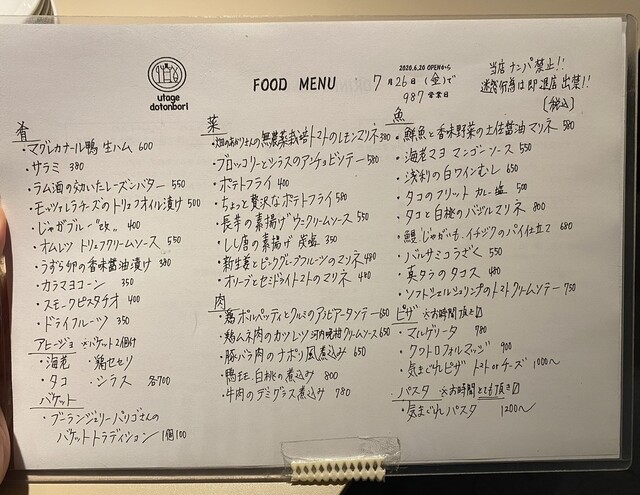 utage
dotonbori
FOOD MENU
2020.6.20 OPENから
7月26日(金)で
987営業日
当店ナンパ禁止!!
迷惑行為は即退店出禁!!
(税込)
肴
・マグレカナール鴨 生ハム 600
・サラミ 380
・ラム酒の効いたレーズンバター 550
・モッツァレラチーズのトリュフオイル漬け 500
・じゃがブルー"改" 400
・オムレツ トリュフクリームソース 550
・うずら卵の香味醤油漬け 380
・カラマヨコーン 350
・スモークピスタチオ 400
・ドライフルーツ 350
アヒージョ ※バケット2個付
・海老 ・鶏セセリ
・タコ ・シラス 各700
バケット
・ブーランジェリーパリゴさんの
バケットトラディション 1個100
菜
・畑のあかりさんの無農薬栽培トマトのレモンマリネ 380
・ブロッコリーとシラスのアンチョビソテー 580
・ポテトフライ 400
・ちょっと贅沢なポテトフライ 580
・長芋の素揚げウニクリームソース 550
・しし唐の素揚げ 炭塩 350
・新生姜とピンクグレープフルーツのマリネ 480
・オリーブとセミドライトマトのマリネ 480
肉
・鶏ポルペッティとクルミのアラビアータソテー 650
・鶏ムネ肉のカツレツ 河内晩柑クリームソース 650
・豚バラ肉のナポリ風煮込み 650
・鴨モモ、白桃の煮込み 800
・牛肉のデミグラス煮込み 780
魚
・鮮魚と香味野菜の土佐醤油マリネ 580
・海老マヨ マンゴーソース 550
・浅利の白ワインむし 650
・タコのフリット カレー塩 500
・タコと白桃のバジルマリネ 800
・鰻、じゃがいも、イチジクのパイ仕立て 680
・バルサミコうざく 550
・真タラのタコス 480
・ソフトシェルシュリンプのトマトクリームソテー 750
ピザ ※お時間頂き〼
・マルゲリータ 780
・クワトロフォルマッジ 900
・気まぐれピザ トマト or チーズ 1000〜
パスタ ※お時間とても頂き〼
・気まぐれパスタ 1200〜